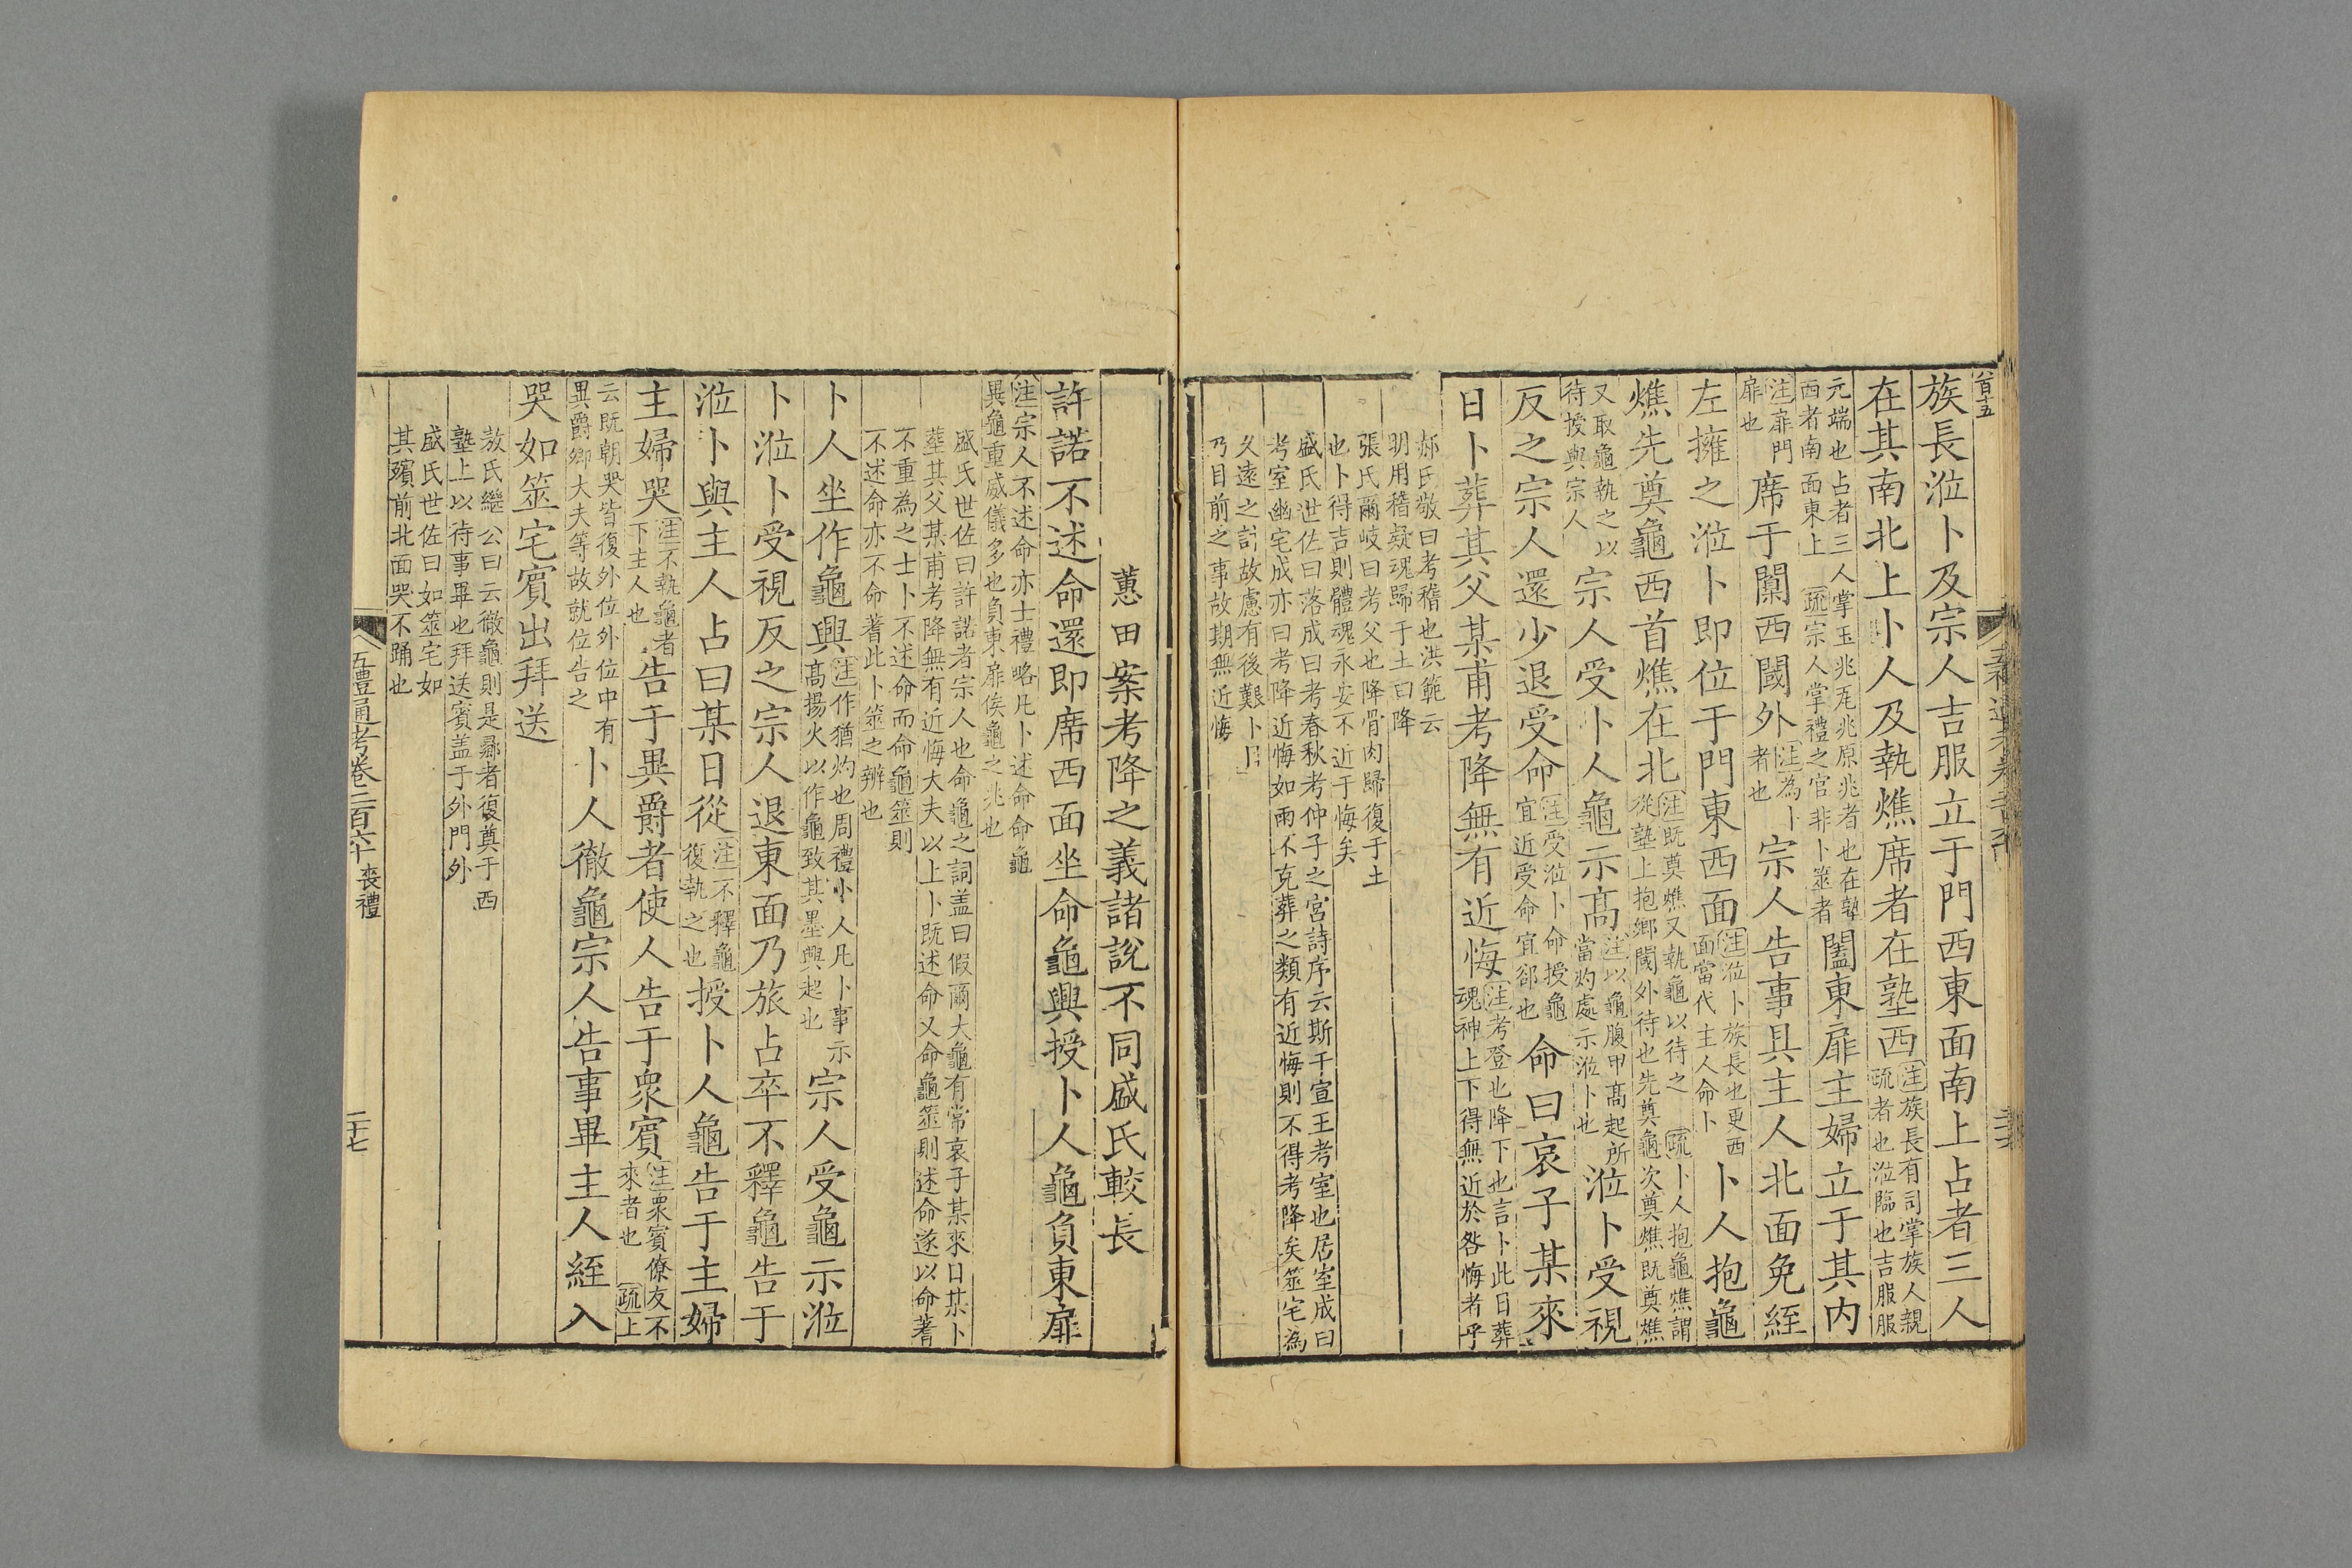 族長涖卜及宗人吉服立于門西東面南上占者三人
在其南北上卜人及執燋席者在塾西注族長有司掌族人親
疏者也涖臨也吉服服
元端也占者三人掌玉兆瓦兆原兆者也在塾
西者南面東上 疏宗人掌禮之官非卜筮者闔東扉主婦立于其內
注扉門
扉也席于闑西閾外注為卜
者也宗人告事具主人北面免絰
左擁之涖卜即位于門東西面注涖卜族長也更西
面當代主人命卜卜人抱龜
燋先奠龜西首燋在北注既奠燋又執龜以待之 疏卜人抱龜燋謂
從塾上抱鄉閾外待也先奠龜次奠燋既奠燋
又取龜執之以
待授與宗人宗人受卜人龜示高注以龜腹甲高起所
當灼處示涖卜也涖卜受視
反之宗人還少退受命注受涖卜命授龜
宜近受命宜郤也命曰哀子某來
日卜葬其父某甫考降無有近悔注考登也降下也言卜此日葬
魂神上下得無近於咎悔者乎
郝氏敬曰考稽也洪範云
明用稽疑魂歸于土曰降
張氏爾岐曰考父也降骨肉歸復于土
也卜得吉則體魂永安不近于悔矣
盛氏世佐曰落成曰考春秋考仲子之宮詩序云斯干宣王考室也居室成曰
考室幽宅成亦曰考降近悔如雨不克葬之類有近悔則不得考降矣筮宅為
久遠之計故慮有後艱卜日
乃目前之事故期無近悔
蕙田案考降之義諸說不同盛氏較長
許諾不述命還即席西面坐命龜興授卜人龜負東扉
注宗人不述命亦士禮略凡卜述命命龜
異龜重威儀多也負東扉俟龜之兆也
盛氏世佐曰許諾者宗人也命龜之詞蓋曰假爾大龜有常哀子某來日某卜
葬其父某甫考降無有近悔大夫以上卜既述命又命龜筮則述命遂以命蓍
不重為之士卜不述命而命龜筮則
不述命亦不命蓍此卜筮之辨也
卜人坐作龜興注作猶灼也周禮卜人凡卜事示
高揚火以作龜致其墨興起也宗人受龜示涖
卜涖卜受視反之宗人退東面乃旅占卒不釋龜告于
涖卜與主人占曰某日從注不釋龜
復執之也授卜人龜告于主婦
主婦哭注不執龜者
下主人也告于異爵者使人告于眾賓注眾賓僚友不
來者也 疏上
云既朝哭皆復外位外位中有
異爵鄉大夫等故就位告之卜人徹龜宗人告事畢主人絰入
哭如筮宅賓出拜送
敖氏繼公曰云徹龜則是鄉者復奠于西
塾上以待事畢也拜送賓蓋于外門外
盛氏世佐曰如筮宅如
其殯前北面哭不踊也
五禮通考卷二百六十 喪禮
二十七